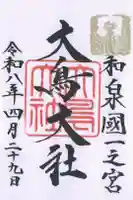 和泉國一之宮
大鳥大社
令和八年四月二十九日